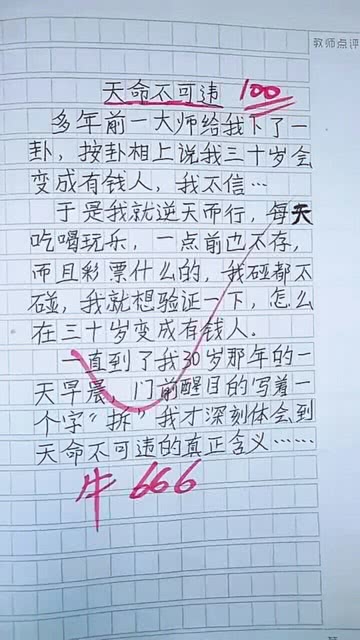 教师点评
天命不可违 100
多年前一大师给我下了一
卦，按卦相上说我三十岁会
变成有钱人，我不信…
于是我就逆天而行，每天
吃喝玩乐，一点前也不存，
而且彩票什么的，我碰都不
碰，我就想验证一下，怎么
在三十岁变成有钱人。
一直到了我30岁那年的一
天早晨，门前醒目的写着一
个字“拆”我才深刻体会到
天命不可违的真正含义……
牛 666